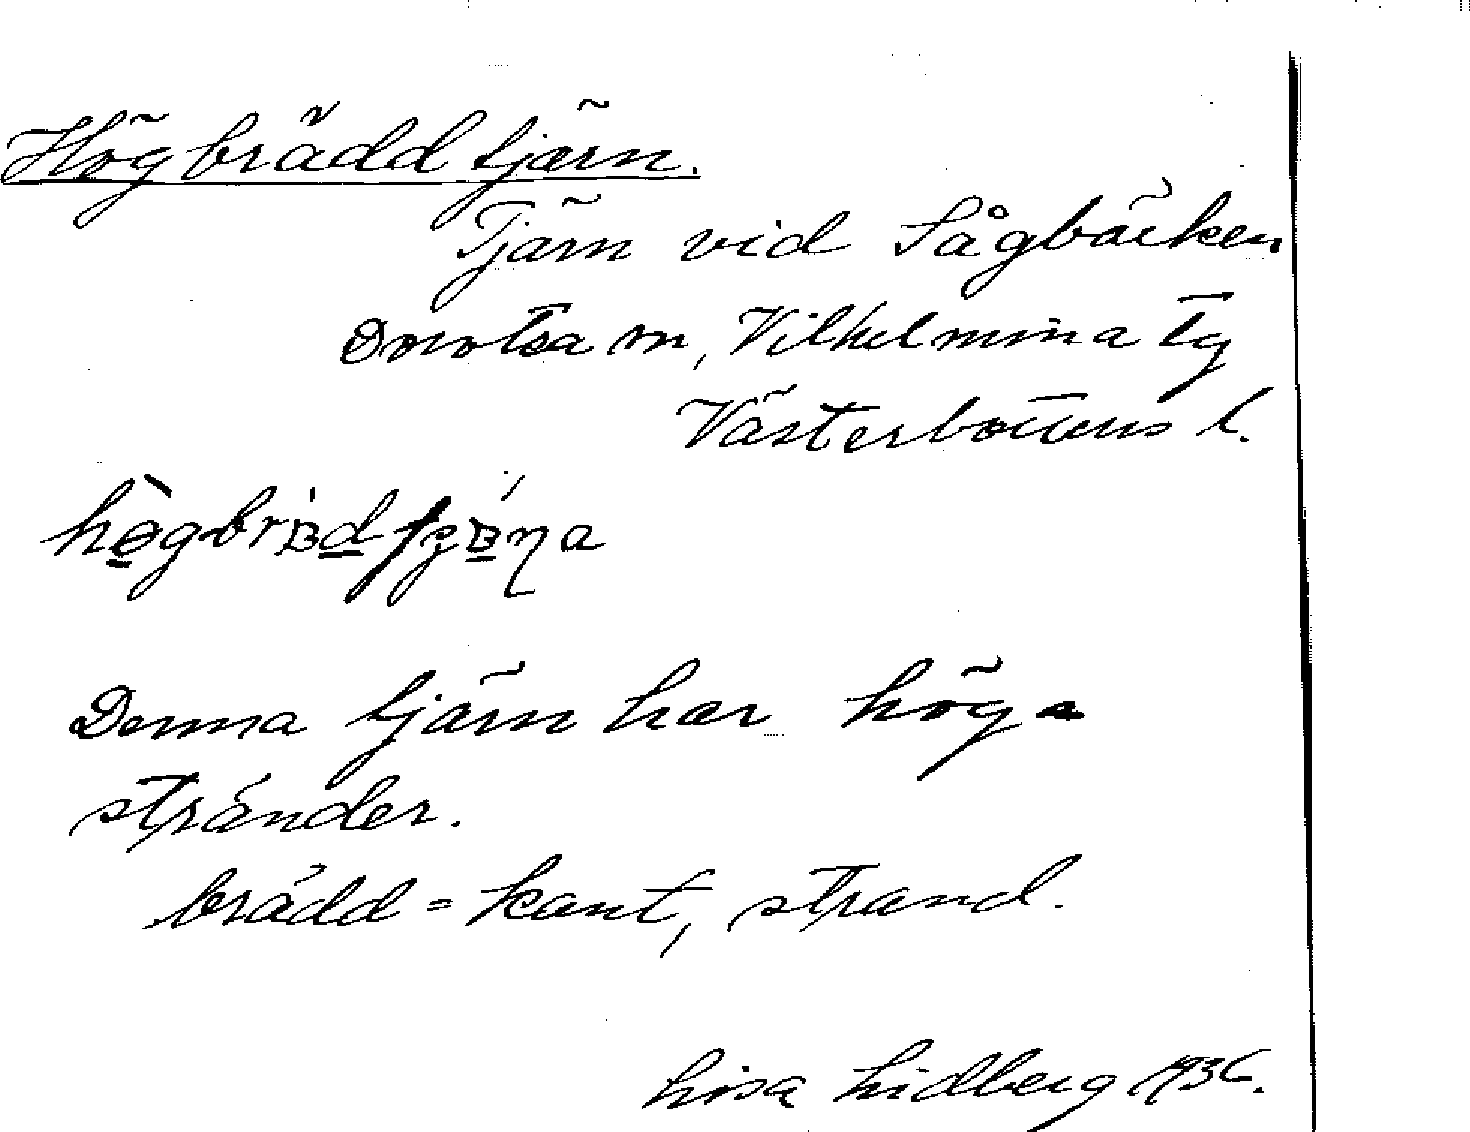 Högbräddtjärn.
Tjärn vid Sågbäcken
Dorotea sn, Vilhelmina tg
Västerbottens l.
Denna tjärn har höga
stränder.
brädd = kant, strand.
Lisa Lidberg 1936.